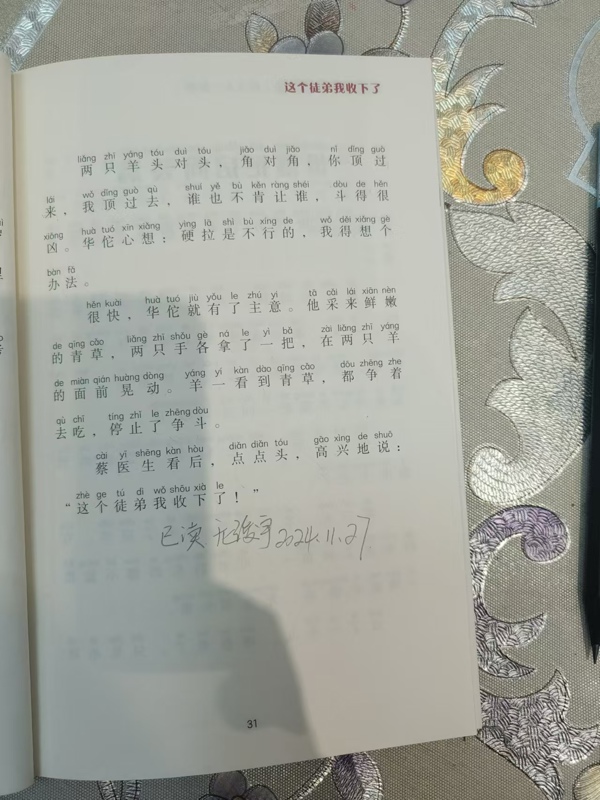 这个徒弟我收下了
liǎng zhī yáng tóu duì tóu jiǎo duì jiǎo nǐ dǐng guò
两只羊头对头，角对角，你顶过
lái wǒ dǐng guò qù shuí yě bù kěn ràng shéi dòu de hěn
来，我顶过去，谁也不肯让谁，斗得很
xiōng huà tuó xīn xiǎng yìng lā shì bù xíng de wǒ děi xiǎng gè
凶。华佗心想：硬拉是不行的，我得想个
bàn fǎ
办法。
hěn kuài huà tuó jiù yǒu le zhǔ yì tā cǎi lái xiān nèn
很快，华佗就有了主意。他采来鲜嫩
de qīng cǎo liǎng zhī shǒu gè ná le yì bǎ zài liǎng zhī yáng
的青草，两只手各拿了一把，在两只羊
de miàn qián huàng dòng yáng yí kàn dào qīng cǎo dōu zhēng zhe
的面前晃动。羊一看到青草，都争着
qù chī tíng zhǐ le zhēng dòu
去吃，停止了争斗。
cài yī shēng kàn hòu diǎn diǎn tóu gāo xìng de shuō
蔡医生看后，点点头，高兴地说：
zhè ge tú dì wǒ shōu xià le
“这个徒弟我收下了！”
已读 2024.11.27
31